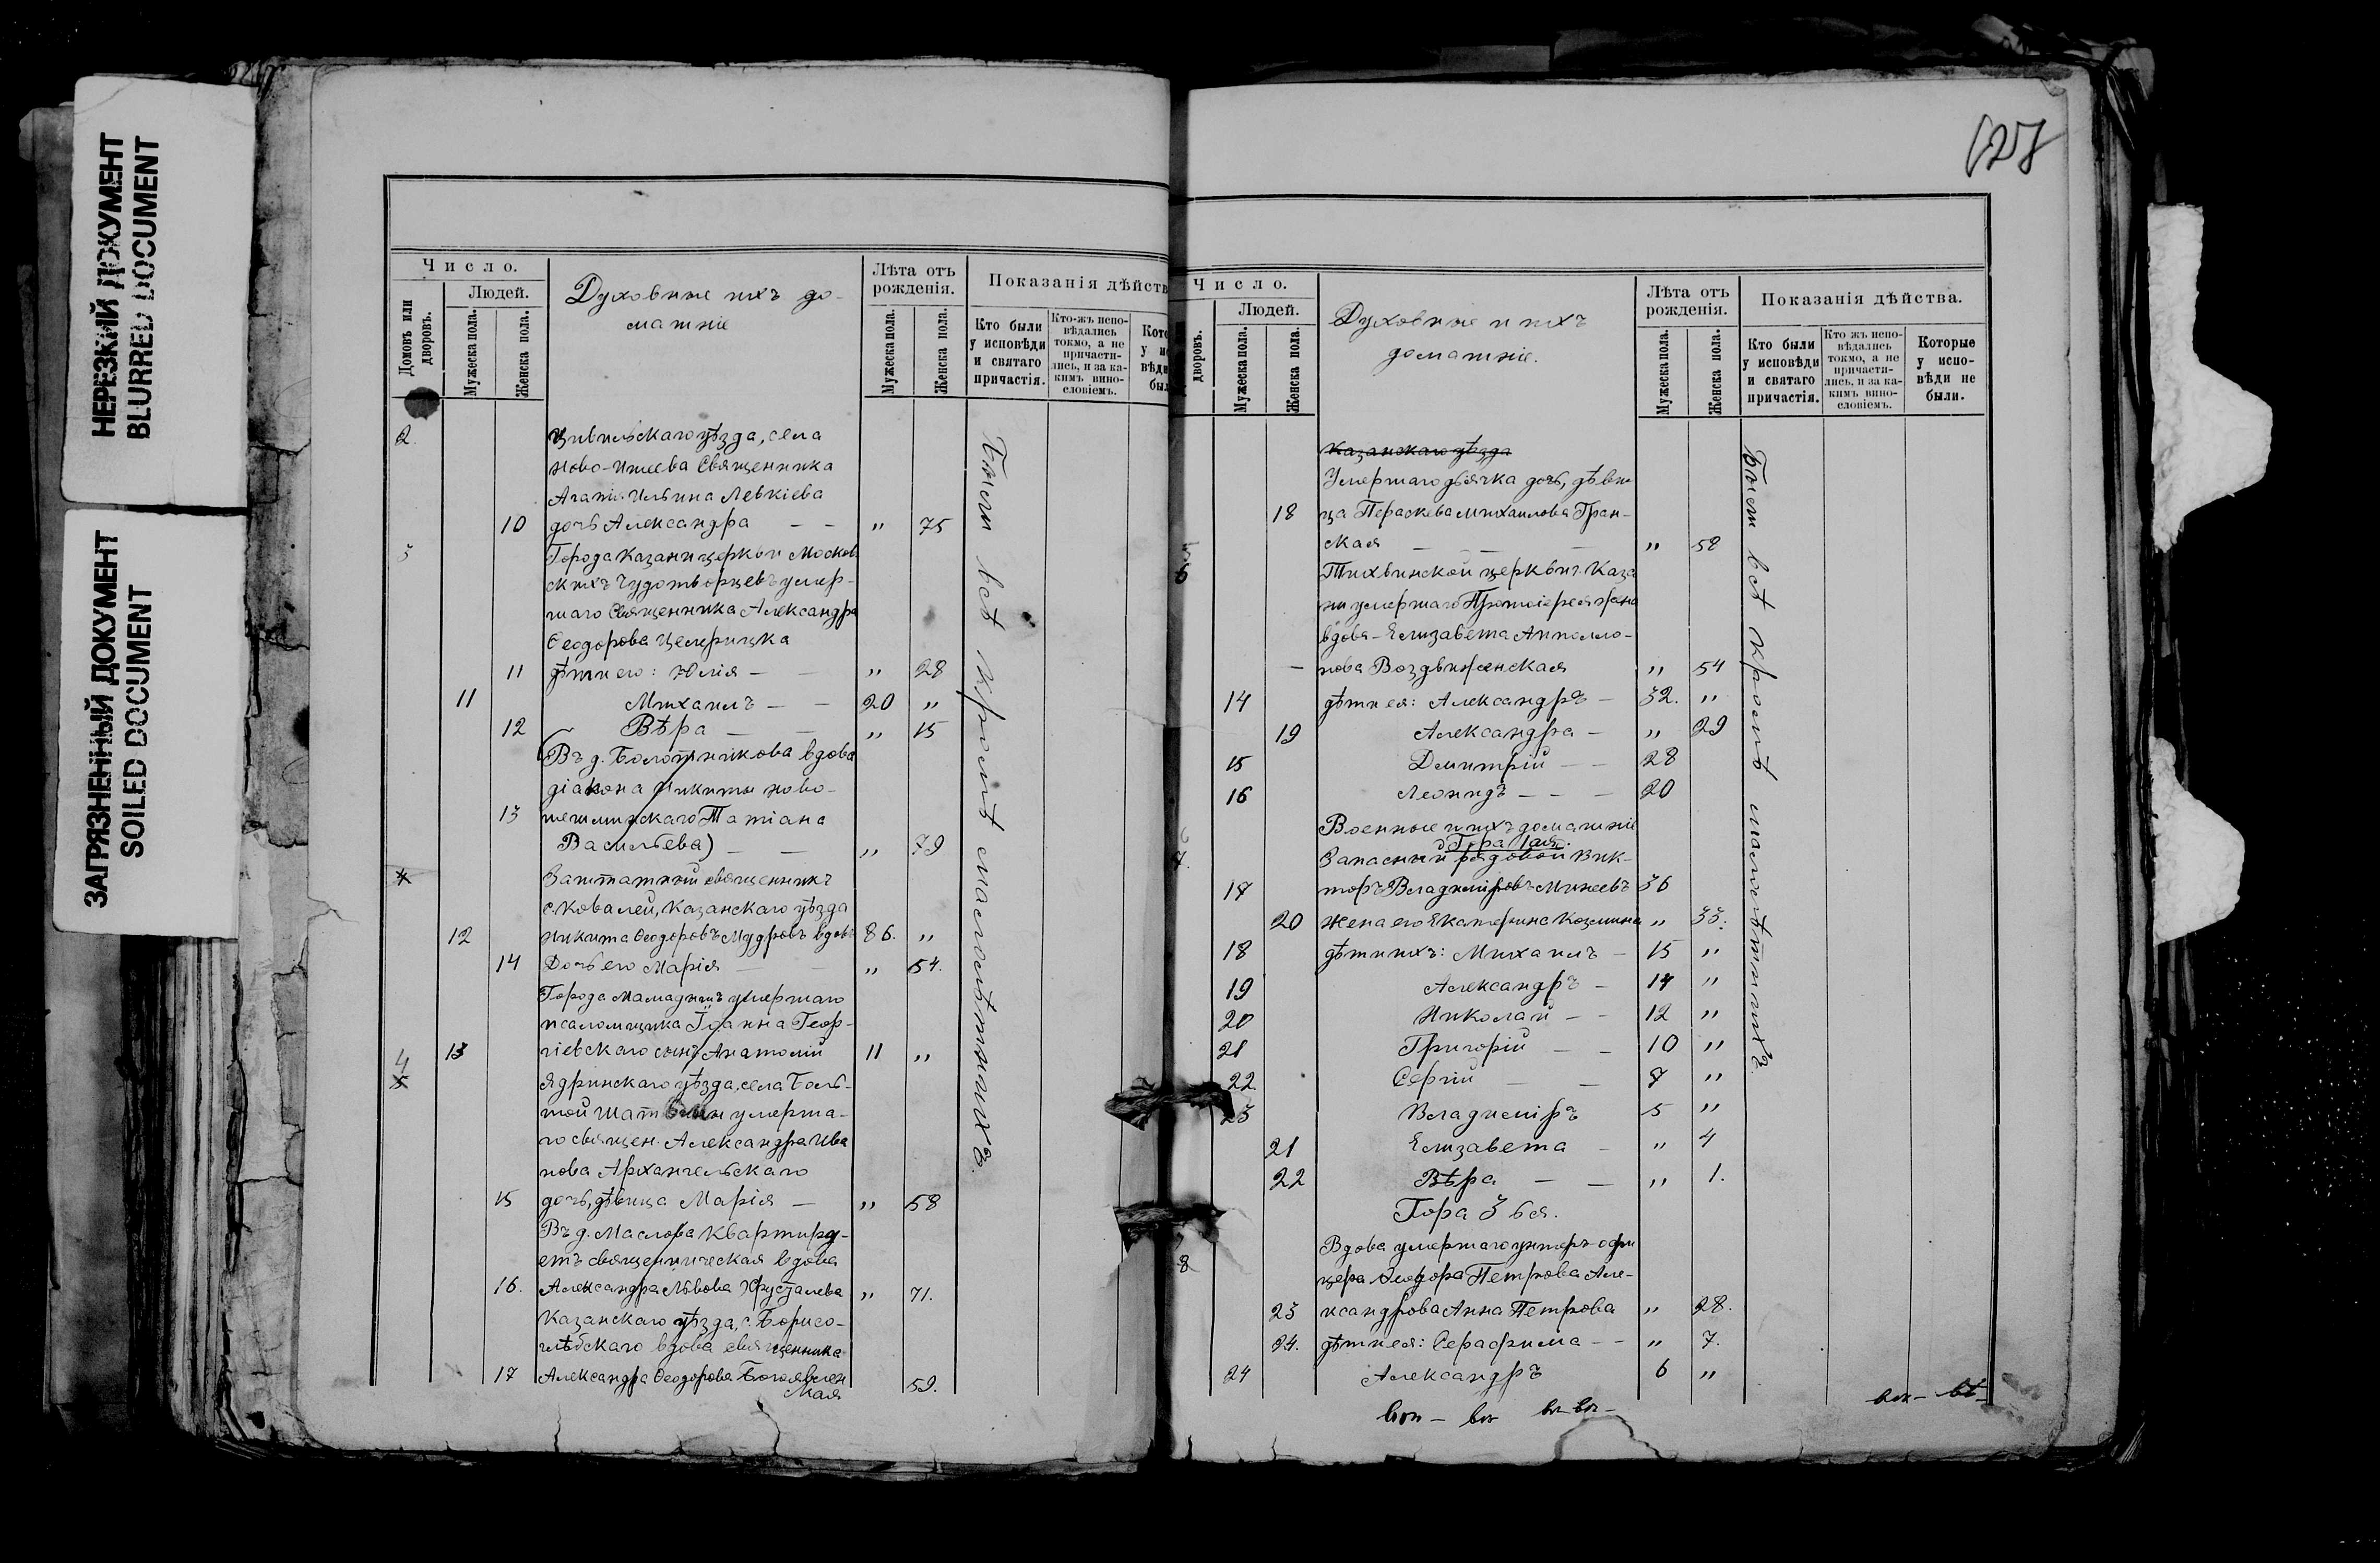 НЕРЕЗКИЙ ДОКУМЕНТ
BLURRED DOCUMENT
ЗАГРЯЗНЕННЫЙ ДОКУМЕНТ
SOILED DOCUMENT
Число.
Домовъ или дворовъ.
Людей.
Мужеска пола.
Женска пола.
Духовные ихъ до-
машніе
Лѣта отъ рожденія.
Мужеска пола.
Женска пола.
Показанія дѣйств
Кто были у исповѣди и святаго причастія.
Кто-жъ испо-вѣдались токмо, а не причасти-лись, и за ка-кимъ вино-словіемъ.
2. Цивильскаго уѣзда, села
Ново-Ишеева Священника
Агат. Ильина Левкіева
10 дочь Александра — — „ 75
3 Города Казани церкви Москов
скихъ Чудотворцевъ умер-
шаго Священника Александра
Ѳеодорова
11 дѣти его: Юлія — — „ 28
11 Михаилъ — — 20 „
12 Вѣра — — „ 15
(Въ д. Болотникова вдова
діакона Никиты Ново-
13 шешминскаго Татіана
Васильева) — — „ 79
4 Заштатный священникъ
с. Ковалей, Казанскаго уѣзда
12 Никита Ѳеодоровъ Мудровъ вдовъ 86. „
14 Дочь его Марія — — „ 54.
Города Мамадышъ умершаго
псаломщика Іоанна Геор-
13 гіевскаго сынъ Анатолій 11 „
4 5 Ядринскаго уѣзда, села Боль-
шой умерша-
го священ. Александра Ива
нова Архангельскаго
15 дочь, дѣвица Марія — „ 58
Въ д. Маслова квартиру-
етъ священническая вдова
16. Александра Львова Хрусталева „ 71.
Казанскаго уѣзда, с. Борисо-
глѣбскаго вдова священника
17 Александра Ѳеодорова Богоявлен
ская 59.
Были всѣ кромѣ малолѣтнихъ
Число.
дворовъ.
Людей.
Мужеска пола.
Женска пола.
Духовные и ихъ
домашніе.
Лѣта отъ рожденія.
Мужеска пола.
Женска пола.
Показанія дѣйства.
Кто были у исповѣди и святаго причастія.
Кто жъ испо-вѣдались токмо, а не причасти-лись, и за ка-кимъ вино-словіемъ.
Которые у испо-вѣди не были.
Казанскаго уѣзда
Умершаго дьячка дочь, дѣви
18 ца Параскева Михаилова Гран-
ская — — — „ 58
Тихвинской церкви г. Каза
ни умершаго Протоіерея жена
вдова - Елизавета Апполло-
— нова Воздвиженская „ 54
14 дѣти ея: Александръ — 32. „
19 Александра — „ 29
15 Димитрій — — 28
16 Леонидъ — — — 20
Военные и ихъ домашніе
Гора 1ая.
7. Запасный рядовой Вик-
17 торъ Владиміровъ Минеевъ 36
20 Жена его Екатерина Козьмина „ 33.
18 дѣти ихъ: Михаилъ — 15 „
19 Александръ — 14 „
20 Николай — — 12 „
21 Григорій — — 10 „
22. Сергій — — 7 „
23 Владиміръ 5 „
21 Елизавета — „ 4
22 Вѣра — — „ 1.
Гора 3ья.
8 Вдова умершаго унтеръ-офи
цера Ѳеодора Петрова Але-
23 ксандрова Анна Петрова „ 28.
24. дѣти ея: Серафима — — „ 7.
24 Александръ 6 „
Были всѣ кромѣ малолѣтнихъ